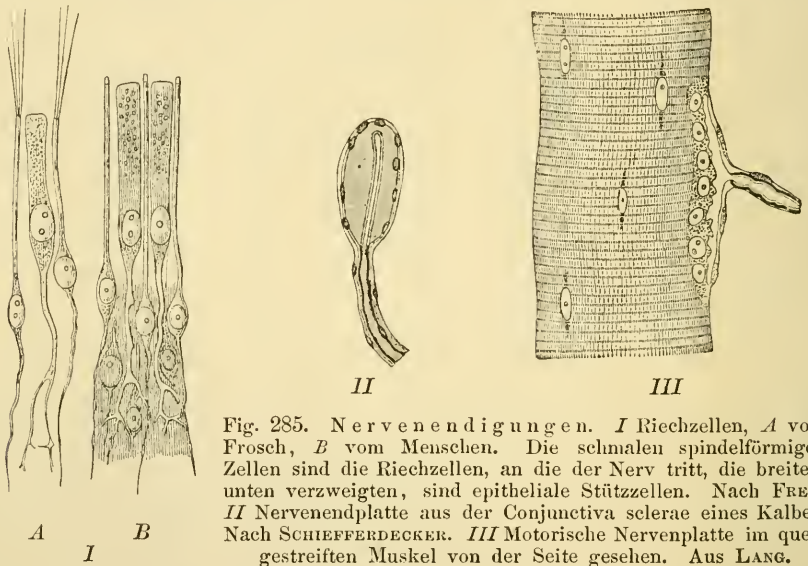 II
III
Fig. 285. Nervenendigungen. I Riechzellen, A vo
Frosch, B vom Menschen. Die schmalen spindelförmige
Zellen sind die Riechzellen, an die der Nerv tritt, die breite
unten verzweigten, sind epitheliale Stützzellen. Nach FRE
II Nervenendplatte aus der Conjunctiva sclerae eines Kalbe
Nach SCHIEFFERDECKER. III Motorische Nervenplatte im que
gestreiften Muskel von der Seite gesehen. Aus LANG.
A B
I